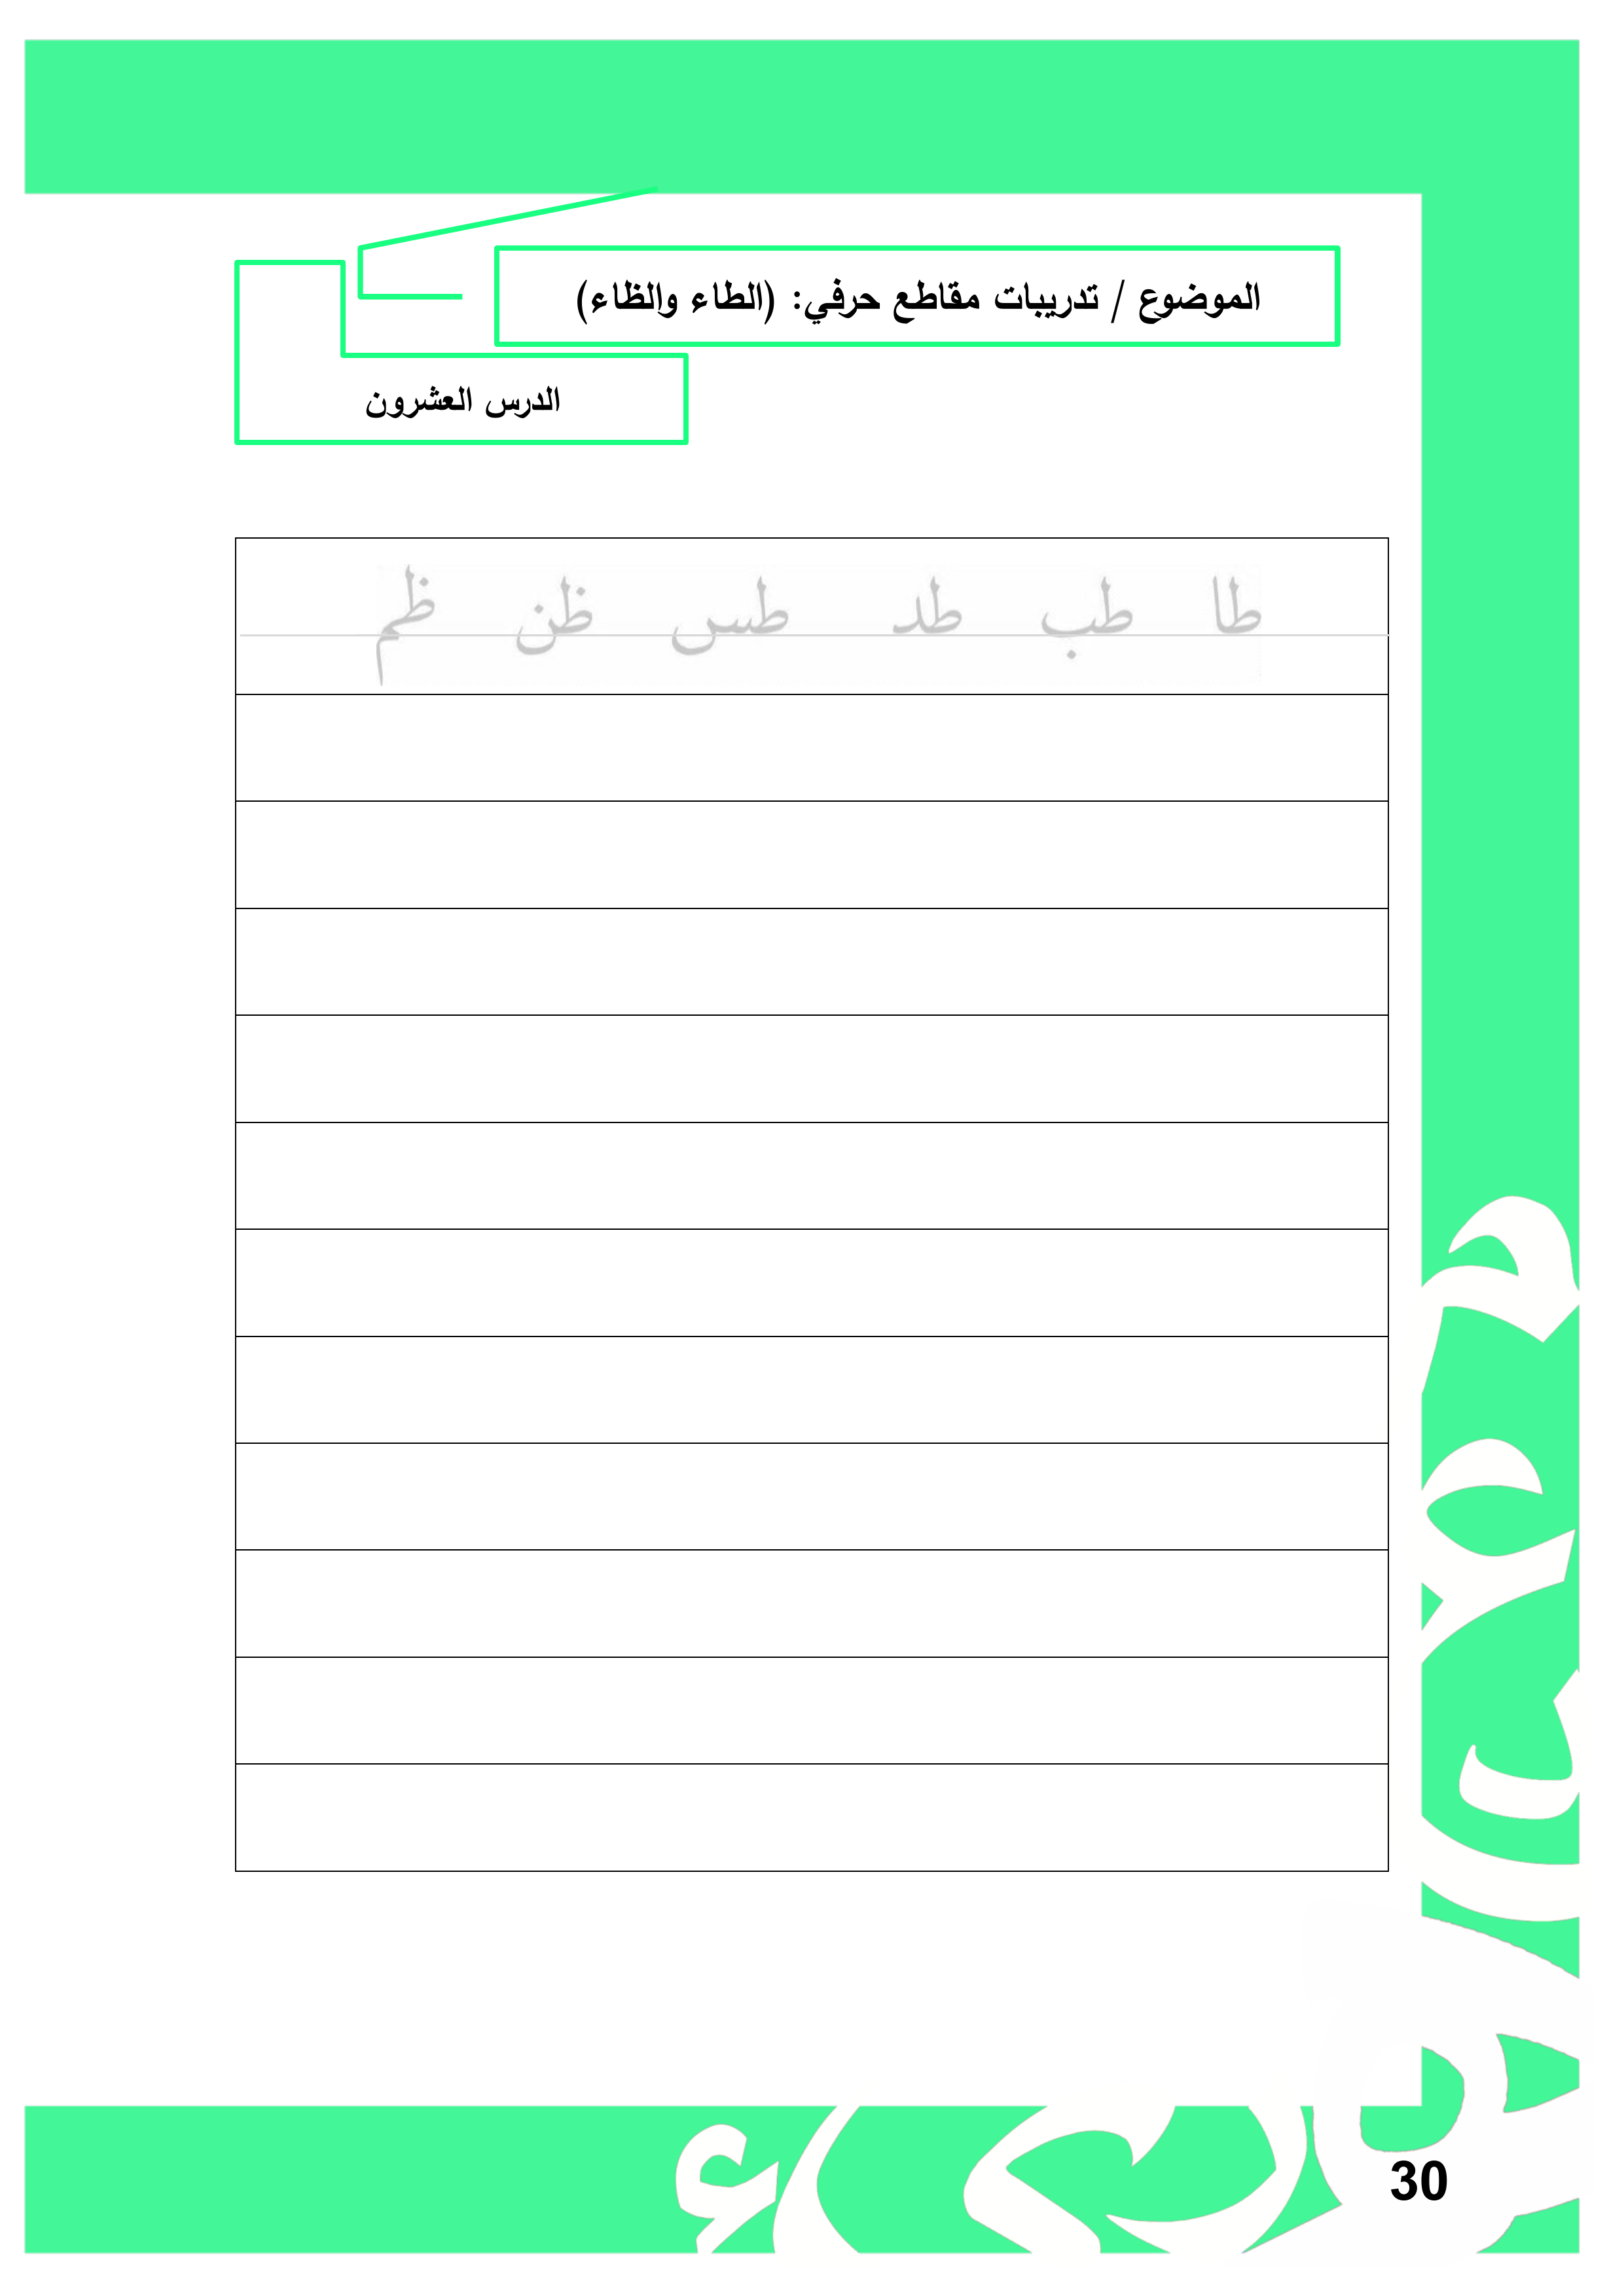 الموضوع / تدريبات مقاطع حرفي: (الطاء والظاء)
الدرس العشرون
طا طب طد طس ظن ظم
30